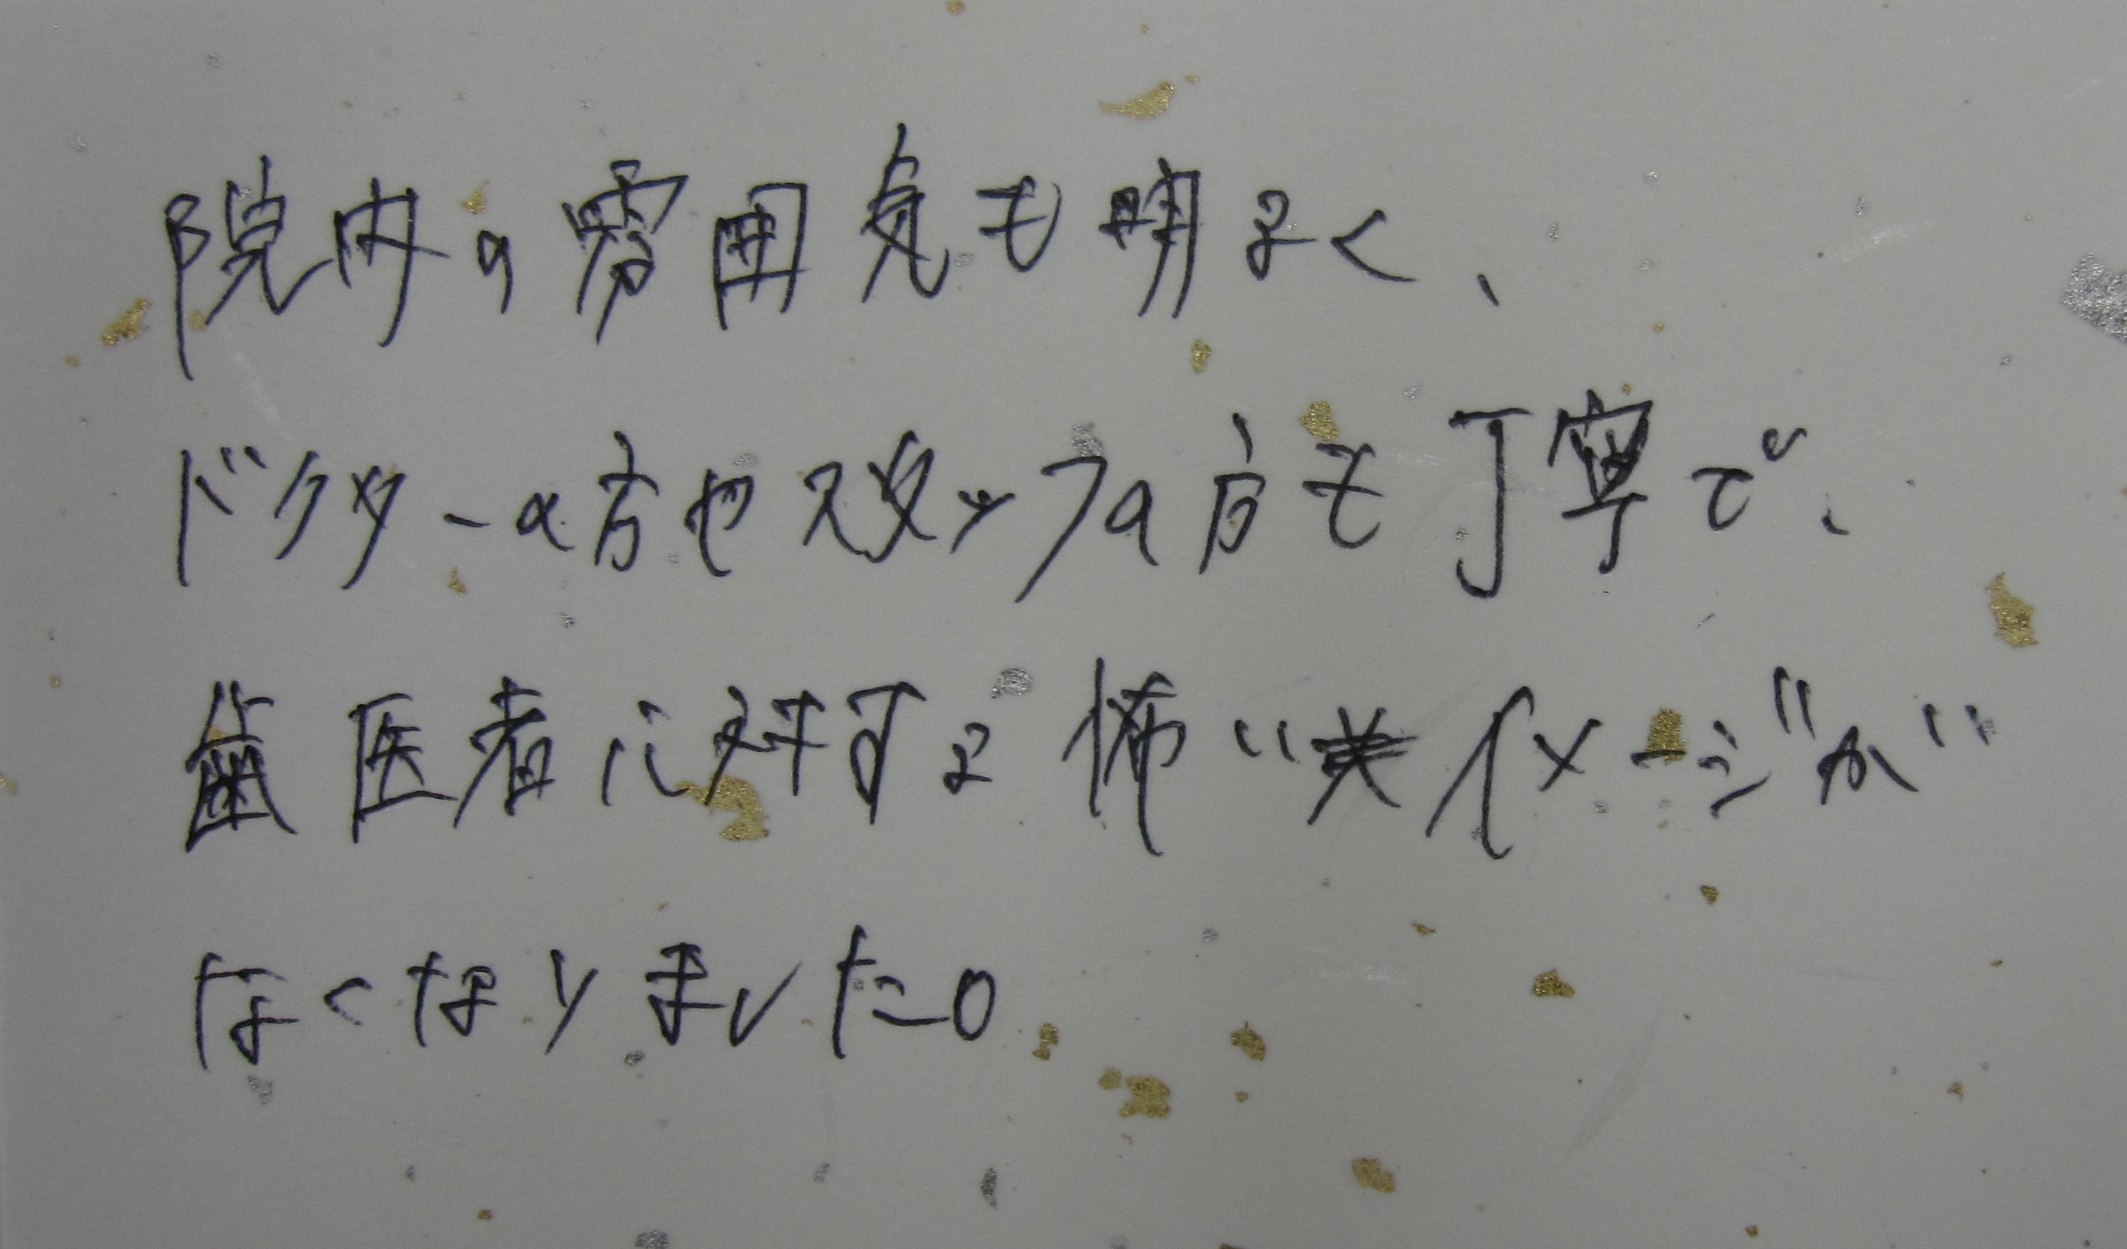 院内の雰囲気も明るく、
ドクターの方やスタッフの方も丁寧で、
歯医者に対する怖いイメージが
なくなりました。